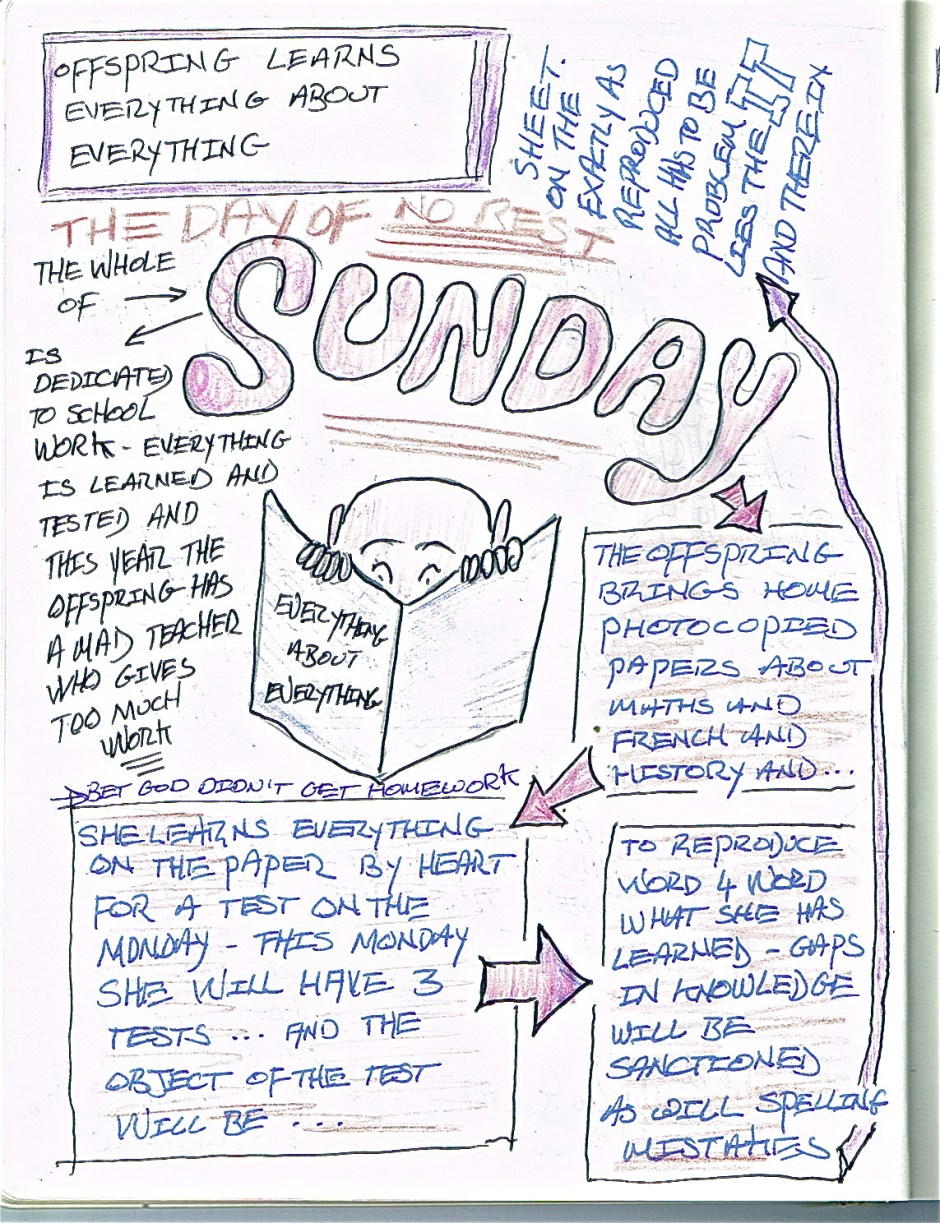 OFFSPRING LEARNS
EVERYTHING ABOUT
EVERYTHING
THE DAY OF NO REST
THE WHOLE
OF
SUNDAY
IS
DEDICATED
TO SCHOOL
WORK - EVERYTHING
IS LEARNED AND
TESTED AND
THIS YEAR THE
OFFSPRING HAS
A MAD TEACHER
WHO GIVES
TOO MUCH
WORK
EVERYTHING
ABOUT
EVERYTHING
BET GOD DIDN'T GET HOMEWORK
THE OFFSPRING
BRINGS HOME
PHOTOCOPIED
PAPERS ABOUT
MATHS AND
FRENCH AND
HISTORY AND...
SHE LEARNS EVERYTHING
ON THE PAPER BY HEART
FOR A TEST ON THE
MONDAY - THIS MONDAY
SHE WILL HAVE 3
TESTS ... AND THE
OBJECT OF THE TEST
WILL BE ...
TO REPRODUCE
WORD 4 WORD
WHAT SHE HAS
LEARNED - GAPS
IN KNOWLEDGE
WILL BE
SANCTIONED
AS WILL SPELLING
MISTAKES
AND THEREIN
LIES THE
PROBLEM
ALL HAS TO BE
REPRODUCED
EXACTLY AS
ON THE
SHEET.